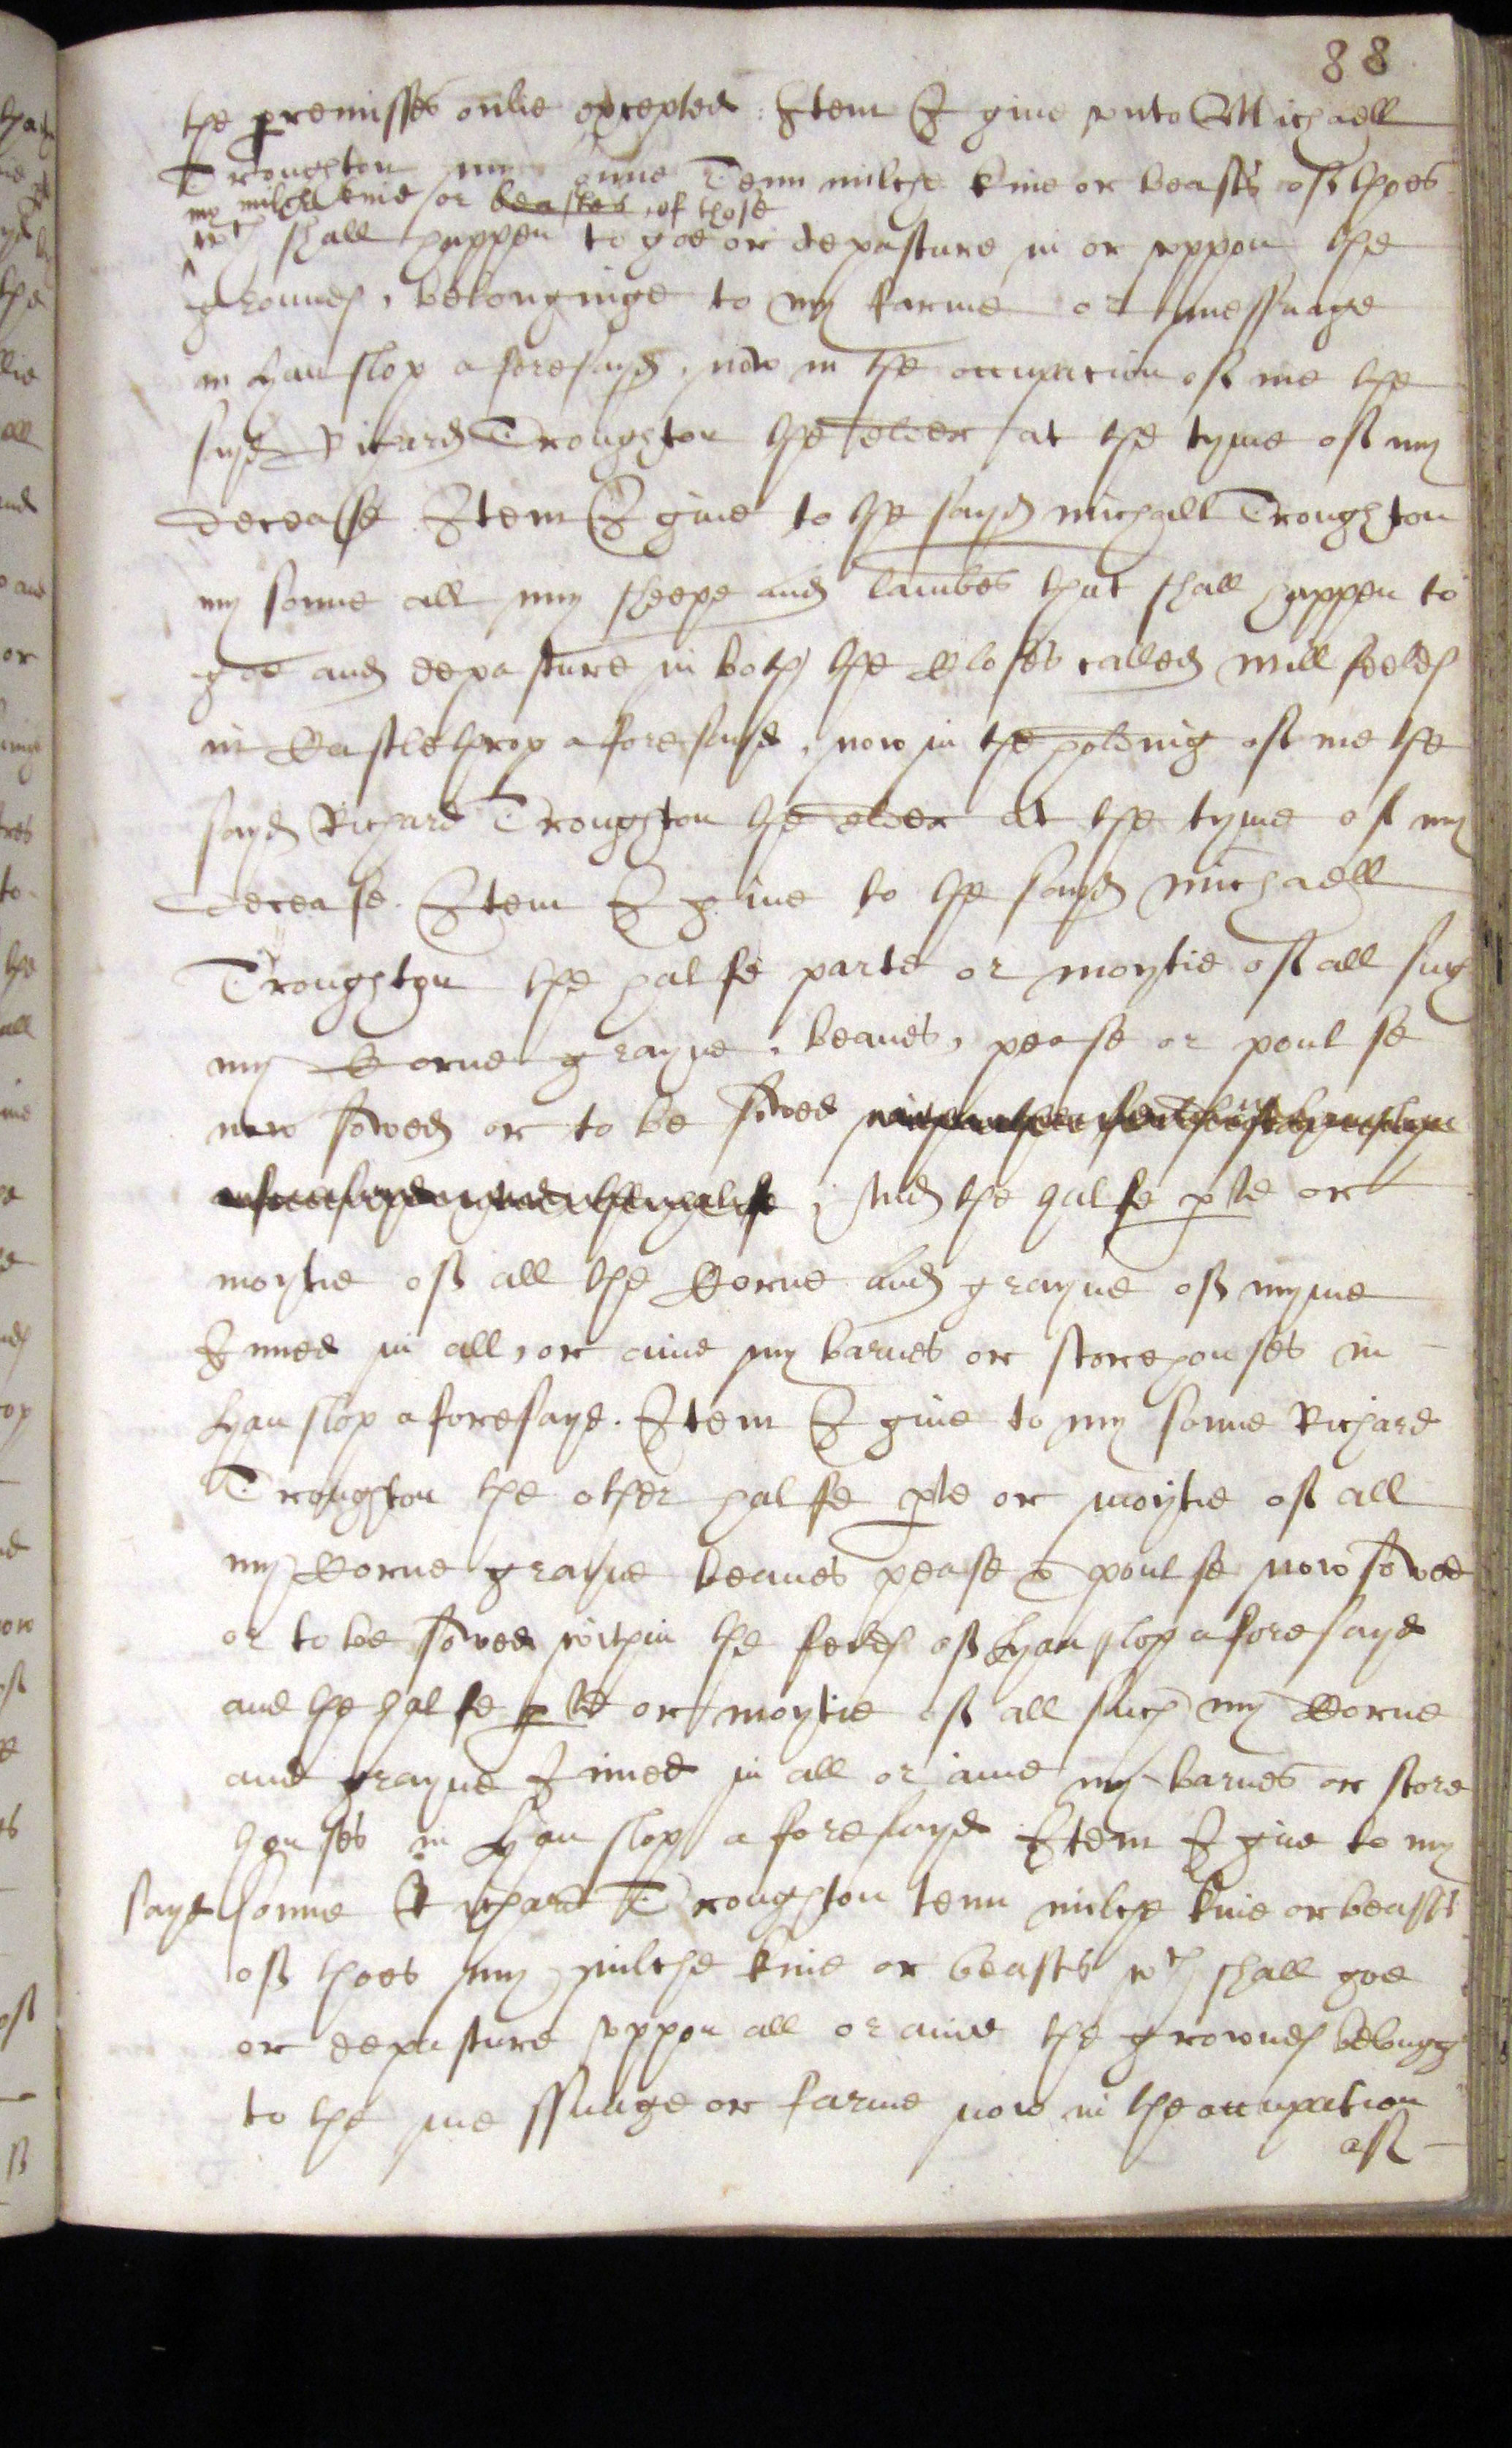 88
the premisses onlie excepted. Item I give unto Michaell
Troughton my sonne Tenn milche kine or beasts of thoes
my milche kine or beastes of those
wch shall happen to goe or depasture in or uppon the
grounds, belonginge to my farme or messuage
in Hanslop aforesayd, now in the occupacion of me the
sayd Richard Troughton the elder at the tyme of my
decease Item I give to the sayd Michaell Troughton
my sonne all my sheepe and lambes that shall happen to
goe and depasture in both the Closes called Mill feelds
in Castlethrop aforesayd, now in the holding of me the
sayd Richard Troughton the elder at the tyme of my
decease. Item I give to the sayd Michaell
Troughton the halfe parte or moytie of all such
my Corne grayne, beanes, pease or poulse
now sowed or to be sowed
, And the halfe pte or
moytie of all the Corne and grayne of myne
Inned in all, or anie my barnes or storehouses in
Hanslop aforesayd. Item I give to my sonne Richard
Troughton the other halfe pte or moytie of all
my Corne grayne beanes pease & poulse now sowed
or to be sowed within the feilds of Hanslop aforesayd
and the halfe pte or moytie of all such my Corne
and grayne Inned in all or anie my barnes or store
houses in Hanslop aforesayd Item I give to my
sayd sonne Richard Troughton tenn milche kine or beasts
of thoes my milche kine or beasts wch shall goe
or depasture uppon all or anie the grownds belongg
to the messuage or farme now in the occupation
of